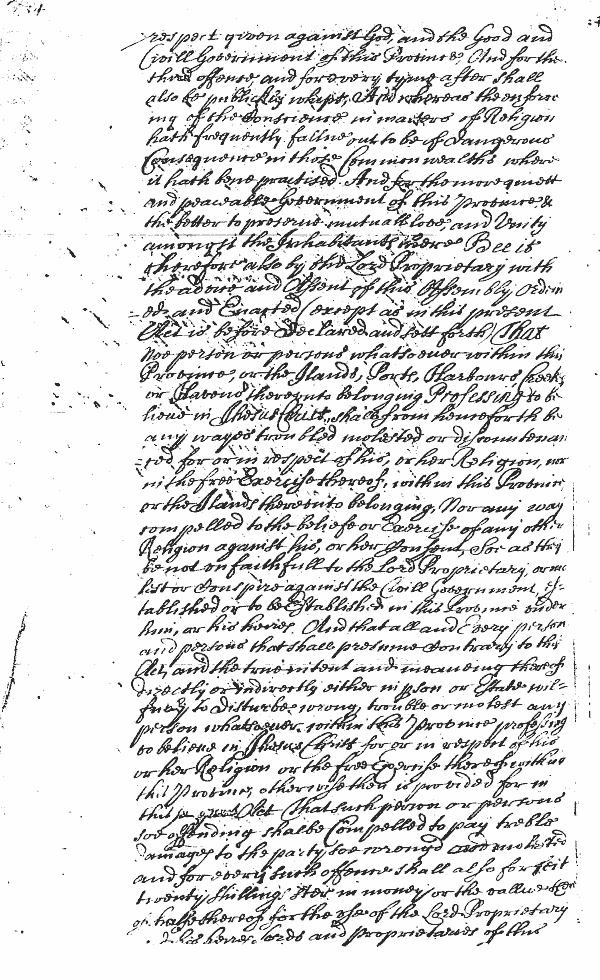 respect given against God, and the Good and
Civill Government of this Province, And for the
third offence, and for every tyme after shall
also be publickly whipt, And whereas the enforc
ing of the conscience in matters of Religion
hath frequently fallne out to be of dangerous
Consequence in those Commonwealths where
it hath bene practised. And for the more quiett
and peaceable Government of this Province &
the better to preserve mutuall love, and Unity
amongst the Inhabitants there Bee it
therefore also by the Lord Proprietary with
the advise and Assent of this Assembly Ordein
ed, and Enacted (except as in this present
Act is before Declared and sett forth) That
noe person or persons whatsoever within this
Province, or the Ilands, Ports, Harbours, Creeks,
or Havens thereunto belonging Professing to be
lieve in Jhesus Christ, shall from henceforth be
any wayes troubled molested or discountenan
ced for or in respect of his, or her Religion, nor
in the free Exercise thereof, within this Province
or the Ilands thereunto belonging, Nor any way
compelled to the beliefe or Exercise of any other
Religion against his, or her consent, Soe as they
be not unfaithfull to the Lord Proprietary, or mo
lest or Conspire against the Civill Government, Es-
tablished or to be Established in this Province under
him, or his heires. And that all and Every person
and persons that shall presume Contrary to this
Act, and the true intent and meaneing thereof
directly or indirectly either in pson or Estate wil-
fully to disturbe, wrong, trouble or molest any
person whatsoever within this Province professing
to believe in Jhesus Christ for or in respect of his
or her Religion or the free Exercise thereof within
this Province, otherwise then is provided for in
this Act That such person or persons
soe offending shalbe Compelled to pay treble
damages to the party soe wronged and molested
and for every such offence shall also forfeit
twenty shillings Ster in money, or the vallue
halfe thereof for the use of the Lord Proprietary
his heires Lords and Proprietaries of this